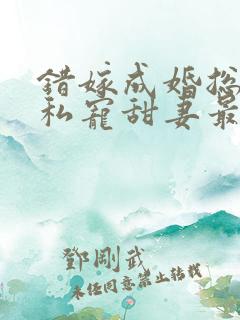 错嫁成婚总
私宠甜妻最
鄧剛武
未经同意禁止转载